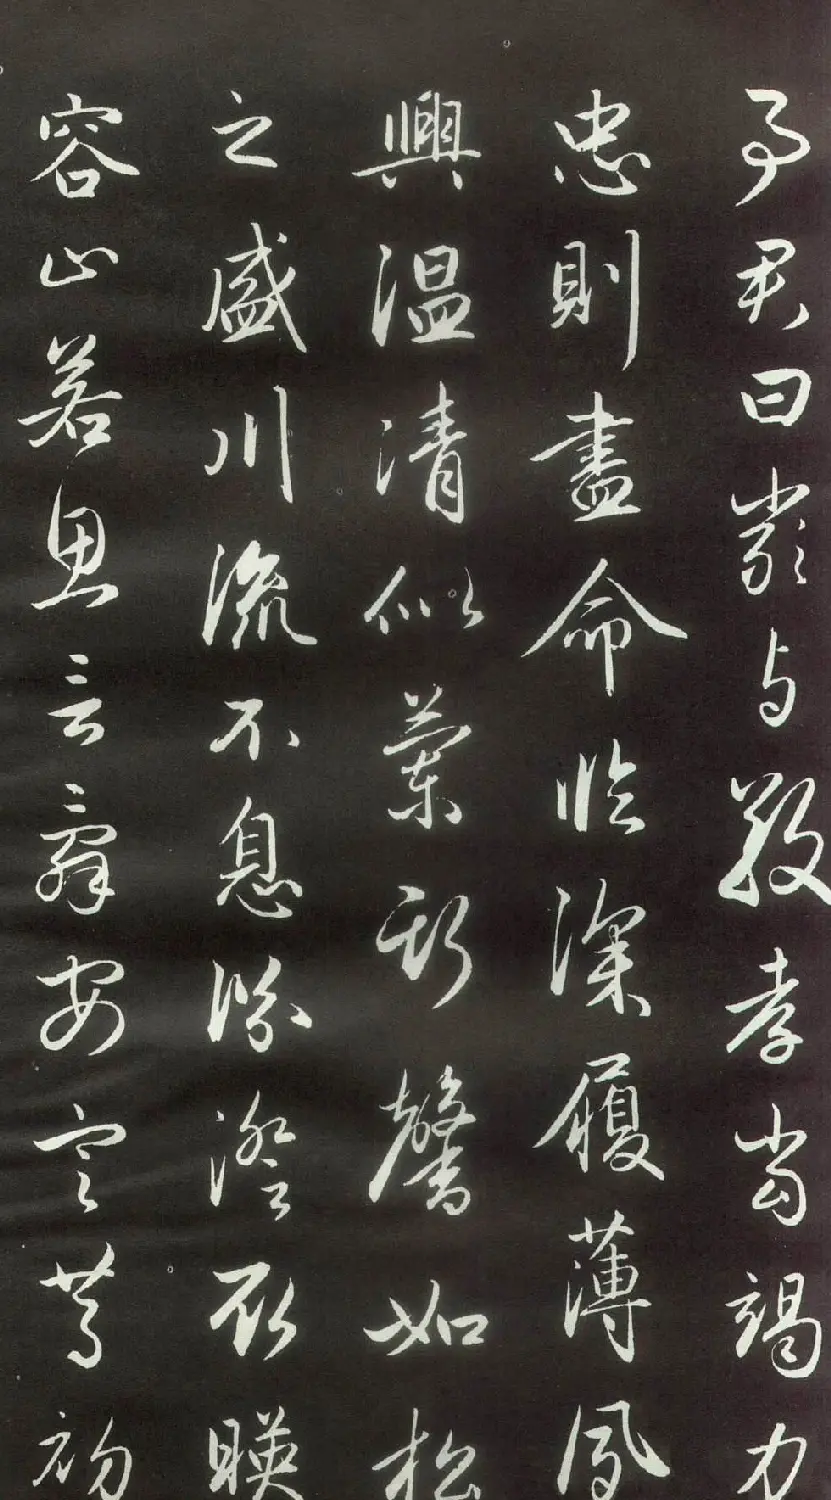 事君曰嚴與敬孝當竭力
忠則盡命臨深履薄夙
興溫清似蘭斯馨如松
之盛川流不息淵澄取暎
容止若思言辭安定篤初